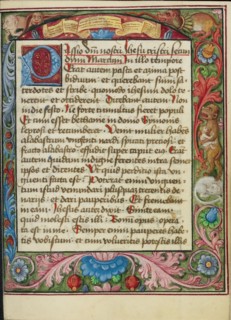 Passio dñi nostri Jhesu cristi scdm
Marcum In illo tempore
Erat autem pasca et azima post
biduum et querebant summi sa
cerdotes et scribe quomodo ihesum dolo te
nerent et occiderent Dicebant autem Non
in die festo Ne forte tumultus fieret populi
Et cum esset bethanie in domo Symonis
leprosi et recumberet Venit mulier habens
alabastrum unguenti nardi spicati preciosi et
fracto alabastro effudit super caput eius Erant
autem quidam indigne ferentes intra semet
ipsos et dicentes Ut quid perditio ista un
guenti facta est Poterat enim unguen
tum istud venundari plusquam trecentis de
nariis et dari pauperibus Et fremebant
in eam Jhesus autem dixit Sinite eam
quid molesti estis illi Bonum opus opera
ta est in me Semper enim pauperes habe
tis vobiscum et cum volueritis potestis illis